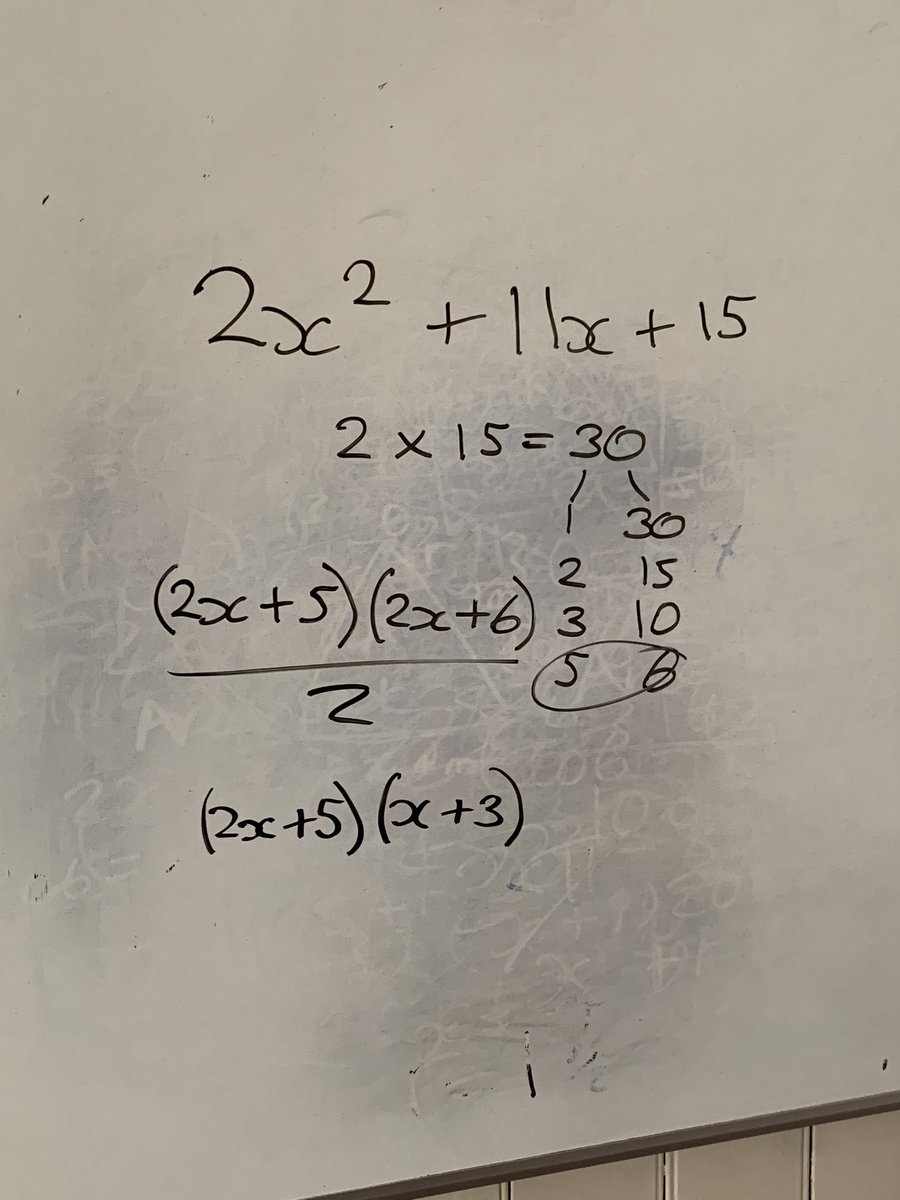 2x² + 11x + 15
2 × 15 = 30
1 30
2 15
3 10
5 6
(2x+5)(2x+6)
2
(2x+5)(x+3)